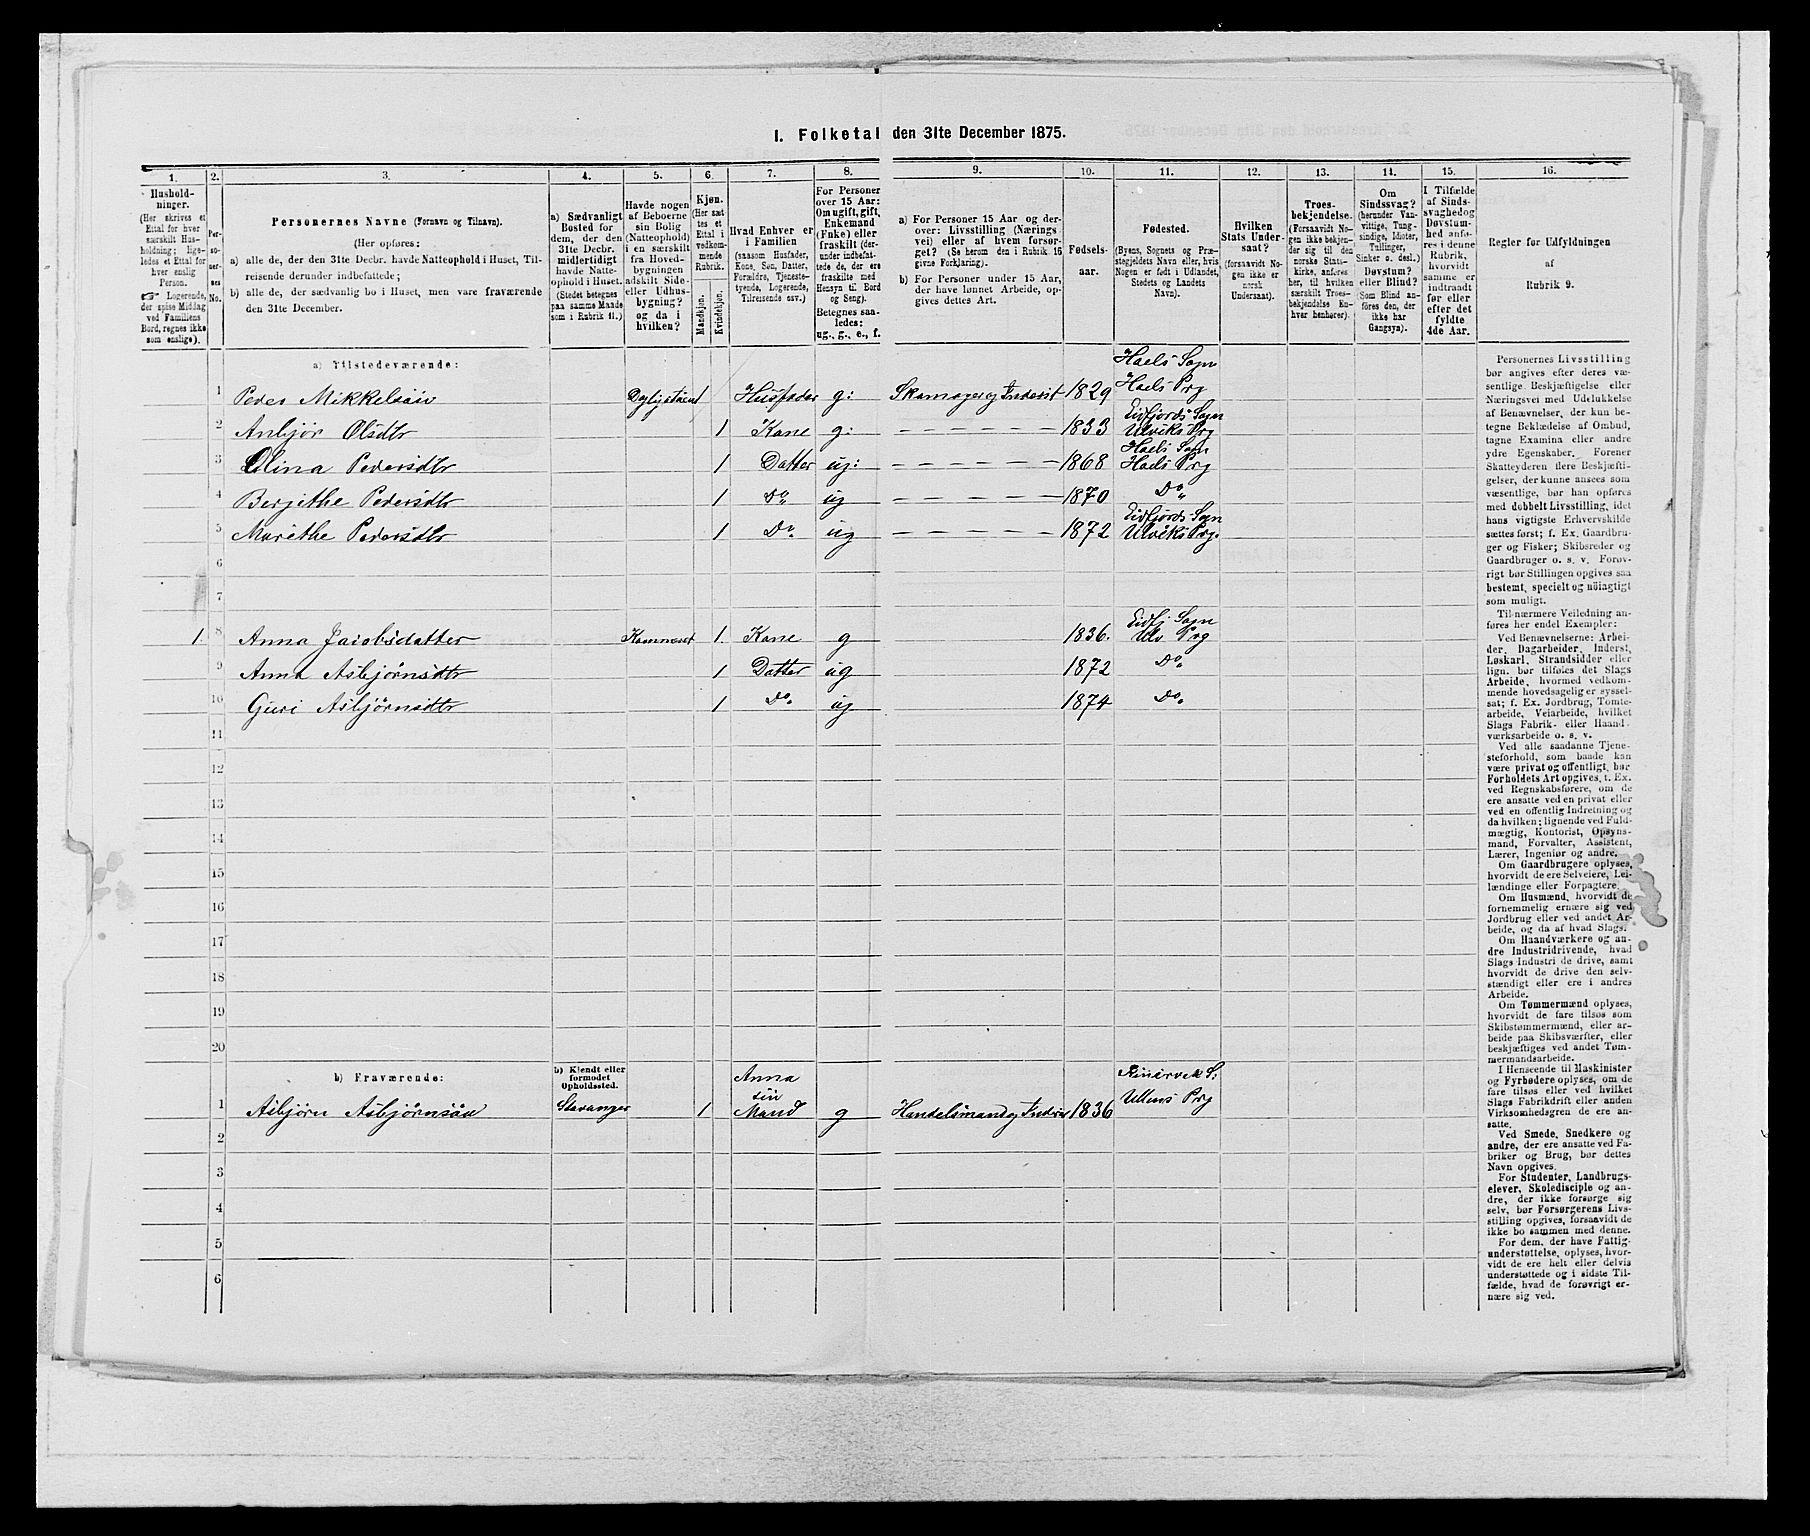 I. Folketal den 31te December 1875.
1. 2. 3. 4. 5. 6. 7. 8. 9. 10. 11. 12. 13. 14. 15. 16.
Husholdninger.
(Her skrives et
Ettal for hver
særskilt Husholdning;
ligeledes et Ettal for
hver enslig
Person.
☞ Logerende,
der spise Middag
ved Familiens
Bord, regnes ikke
som enslige).
Personernes No.
Personernes Navne (Fornavn og Tilnavn).
(Her opføres:
a) alle de, der den 31te Decbr. havde Natteophold i Huset, Tilreisende derunder indbefattede;
b) alle de, der sædvanlig bo i Huset, men vare fraværende
den 31te December.
a) Sædvanligt
Bosted for
dem, der den
31te Decbr.
midlertidigt
havde Natteophold
i Huset.
(Stedet betegnes
paa samme Maade
som i Rubrik 11.)
Havde nogen
af Beboerne
sin Bolig
(Natteophold)
i en særskilt
fra Hovedbygningen
adskilt Side-
eller Udhusbygning?
og da i
hvilken?
Kjøn.
(Her sættes et
Ettal i
vedkommende
Rubrik.
Mandkjøn.
Kvindekjøn.
Hvad Enhver er
i Familien
(saasom Husfader,
Kone, Søn, Datter,
Forældre, Tjenestetyende,
Logerende,
Tilreisende osv.)
For Personer
over 15 Aar:
Om ugift, gift,
Enkemand
(Enke) eller
fraskilt (derunder
indbefattede
de, der ere
fraskilte med
Hensyn til Bord
og Seng).
Betegnes saaledes:
ug., g., e., f.
a) For Personer 15 Aar og derover:
Livsstilling (Næringsvei)
eller af hvem forsørget?
(Se herom den i Rubrik 16
givne Forklaring).
b) For Personer under 15 Aar,
der have lønnet Arbeide, opgives
dettes Art.
Fødselsaar.
Fødested.
(Byens, Sognets og Præstegjeldets
Navn eller, hvis
Nogen er født i Udlandet,
Stedets og Landets
Navn).
Hvilken
Stats Undersaat?
(forsaavidt Nogen
ikke er
norsk
Undersaat).
Troesbekjendelse.
(Forsaavidt Nogen
ikke bekjender
sig til den
norske Statskirke,
anføres
her, til hvilken
særskilt Troesbekjendelse
Enhver
henhører).
Om
Sindssvag?
(herunder Vanvittige,
Tungsindige,
Idioter,
Tullinger,
Sinker o. desl.)
Døvstum?
eller Blind?
(Som Blind anføres
den, der
ikke har
Gangsyn).
I Tilfælde
af Sindssvaghed
og
Døvstumhed
anføres
i denne
Rubrik,
hvorvidt
samme er
indtraadt
før eller
efter det
fyldte
4de Aar.
Regler for Udfyldningen
af
Rubrik 9.
a) Tilstedeværende:
1 Peder Mikkelsøn 1 Husfader g: Skomager og Inderst 1829 Haels Sogn Haels Prg
2 Anbjør Olsdtr 1 Kone g: 1833 Eidfjords Sogn Ulviks Prg
3 Olina Pedersdtr 1 Datter ug: 1868 Haels Sogn Haels Prg
4 Bergithe Pedersdtr 1 Do ug 1870 Do
5 Marithe Pedersdtr 1 Do ug 1872 Eidfjords Sogn Ulviks Prg.
6
7
1 8 Anna Jacobsdatter 1. Kone g 1836. Eidfj Sogn Ulv Prg
9 Anna Asbjørnsdtr 1 Datter ug 1872 Do
10 Guri Asbjørnsdtr 1 Do ug 1874 Do
11
12
13
14
15
16
17
18
19
20
b) Fraværende:
b) Kjendt eller
formodet
Opholdssted.
1 Asbjørn Asbjørnsøn Stavanger 1 Anna sin Mand g Handelsmand og 1836 Prg
2
3
4
5
6
Personernes Livsstilling
bør angives efter deres væsentlige
Beskjæftigelse eller
Næringsvei med Udelukkelse
af Benævnelser, der kun betegne
Beklædelse af Ombud,
tagne Examina eller andre
ydre Egenskaber. Forener
Skatteyderen flere Beskjæftigelser,
der kunne ansees som
væsentlige, bør han opføres
med dobbelt Livsstilling, idet
hans vigtigste Erhvervskilde
sættes først; f. Ex. Gaardbruger
og Fisker; Skibsreder og
Gaardbruger o. s. v. Forøvrigt
bør Stillingen opgives saa
bestemt, specielt og nøiagtigt
som muligt.
Til nærmere Veiledning anføres
her endel Exempler:
Ved Benævnelserne: Arbeider,
Dagarbeider, Inderst,
Løskarl, Strandsidder eller
lign. bør tilføies det Slags
Arbeide, hvormed vedkommende
hovedsagelig er sysselsat;
f. Ex. Jordbrug, Tomtearbeide,
Veiarbeide, hvilket
Slags Fabrik- eller Haandværksarbeide
o. s. v.
Ved alle saadanne Tjenesteforhold,
som baade kan
være privat og offentligt, bør
Forholdets Art opgives, t. Ex.
ved Regnskabsførere, om de
ere ansatte ved en privat eller
ved en offentlig Indretning og
da hvilken; lignende ved Fuldmægtig,
Kontorist, Opsynsmand,
Forvalter, Assistent,
Lærer, Ingeniør og andre.
Om Gaardbrugere oplyses,
hvorvidt de ere Selveiere, Leilændinge
eller Forpagtere.
Om Husmænd, hvorvidt de
fornemmelig ernære sig ved
Jordbrug eller ved andet Arbeide,
og da af hvad Slags.
Om Haandværkere og andre
Industridrivende, hvad
Slags Industri de drive, samt
hvorvidt de drive den selvstændigt
eller ere i andres
Arbeide.
Om Tømmermænd oplyses,
hvorvidt de fare tilsøs som
Skibstømmermænd, eller arbeide
paa Skibsværfter, eller
beskjæftiges ved andet Tømmermandsarbeide.
I Henseende til Maskinister
og Fyrbødere oplyses, om de
fare tilsøs eller ved hvilket
Slags Fabrikdrift eller anden
Virksomhed de ere ansatte.
Ved Smede, Snedkere og
andre, der ere ansatte ved Fabriker
og Brug, bør dettes
Navn opgives.
For Studenter, Landbrugselever,
Skoledisciple og andre,
der ikke forsørge sig
selv, bør Forsørgerens Livsstilling
opgives, forsaavidt de
ikke bo sammen med denne.
For dem, der have Fattigunderstøttelse,
oplyses, hvorvidt
de ere helt eller delvis
understøttede og i sidste Tilfælde,
hvad de forøvrigt ernære
sig ved.